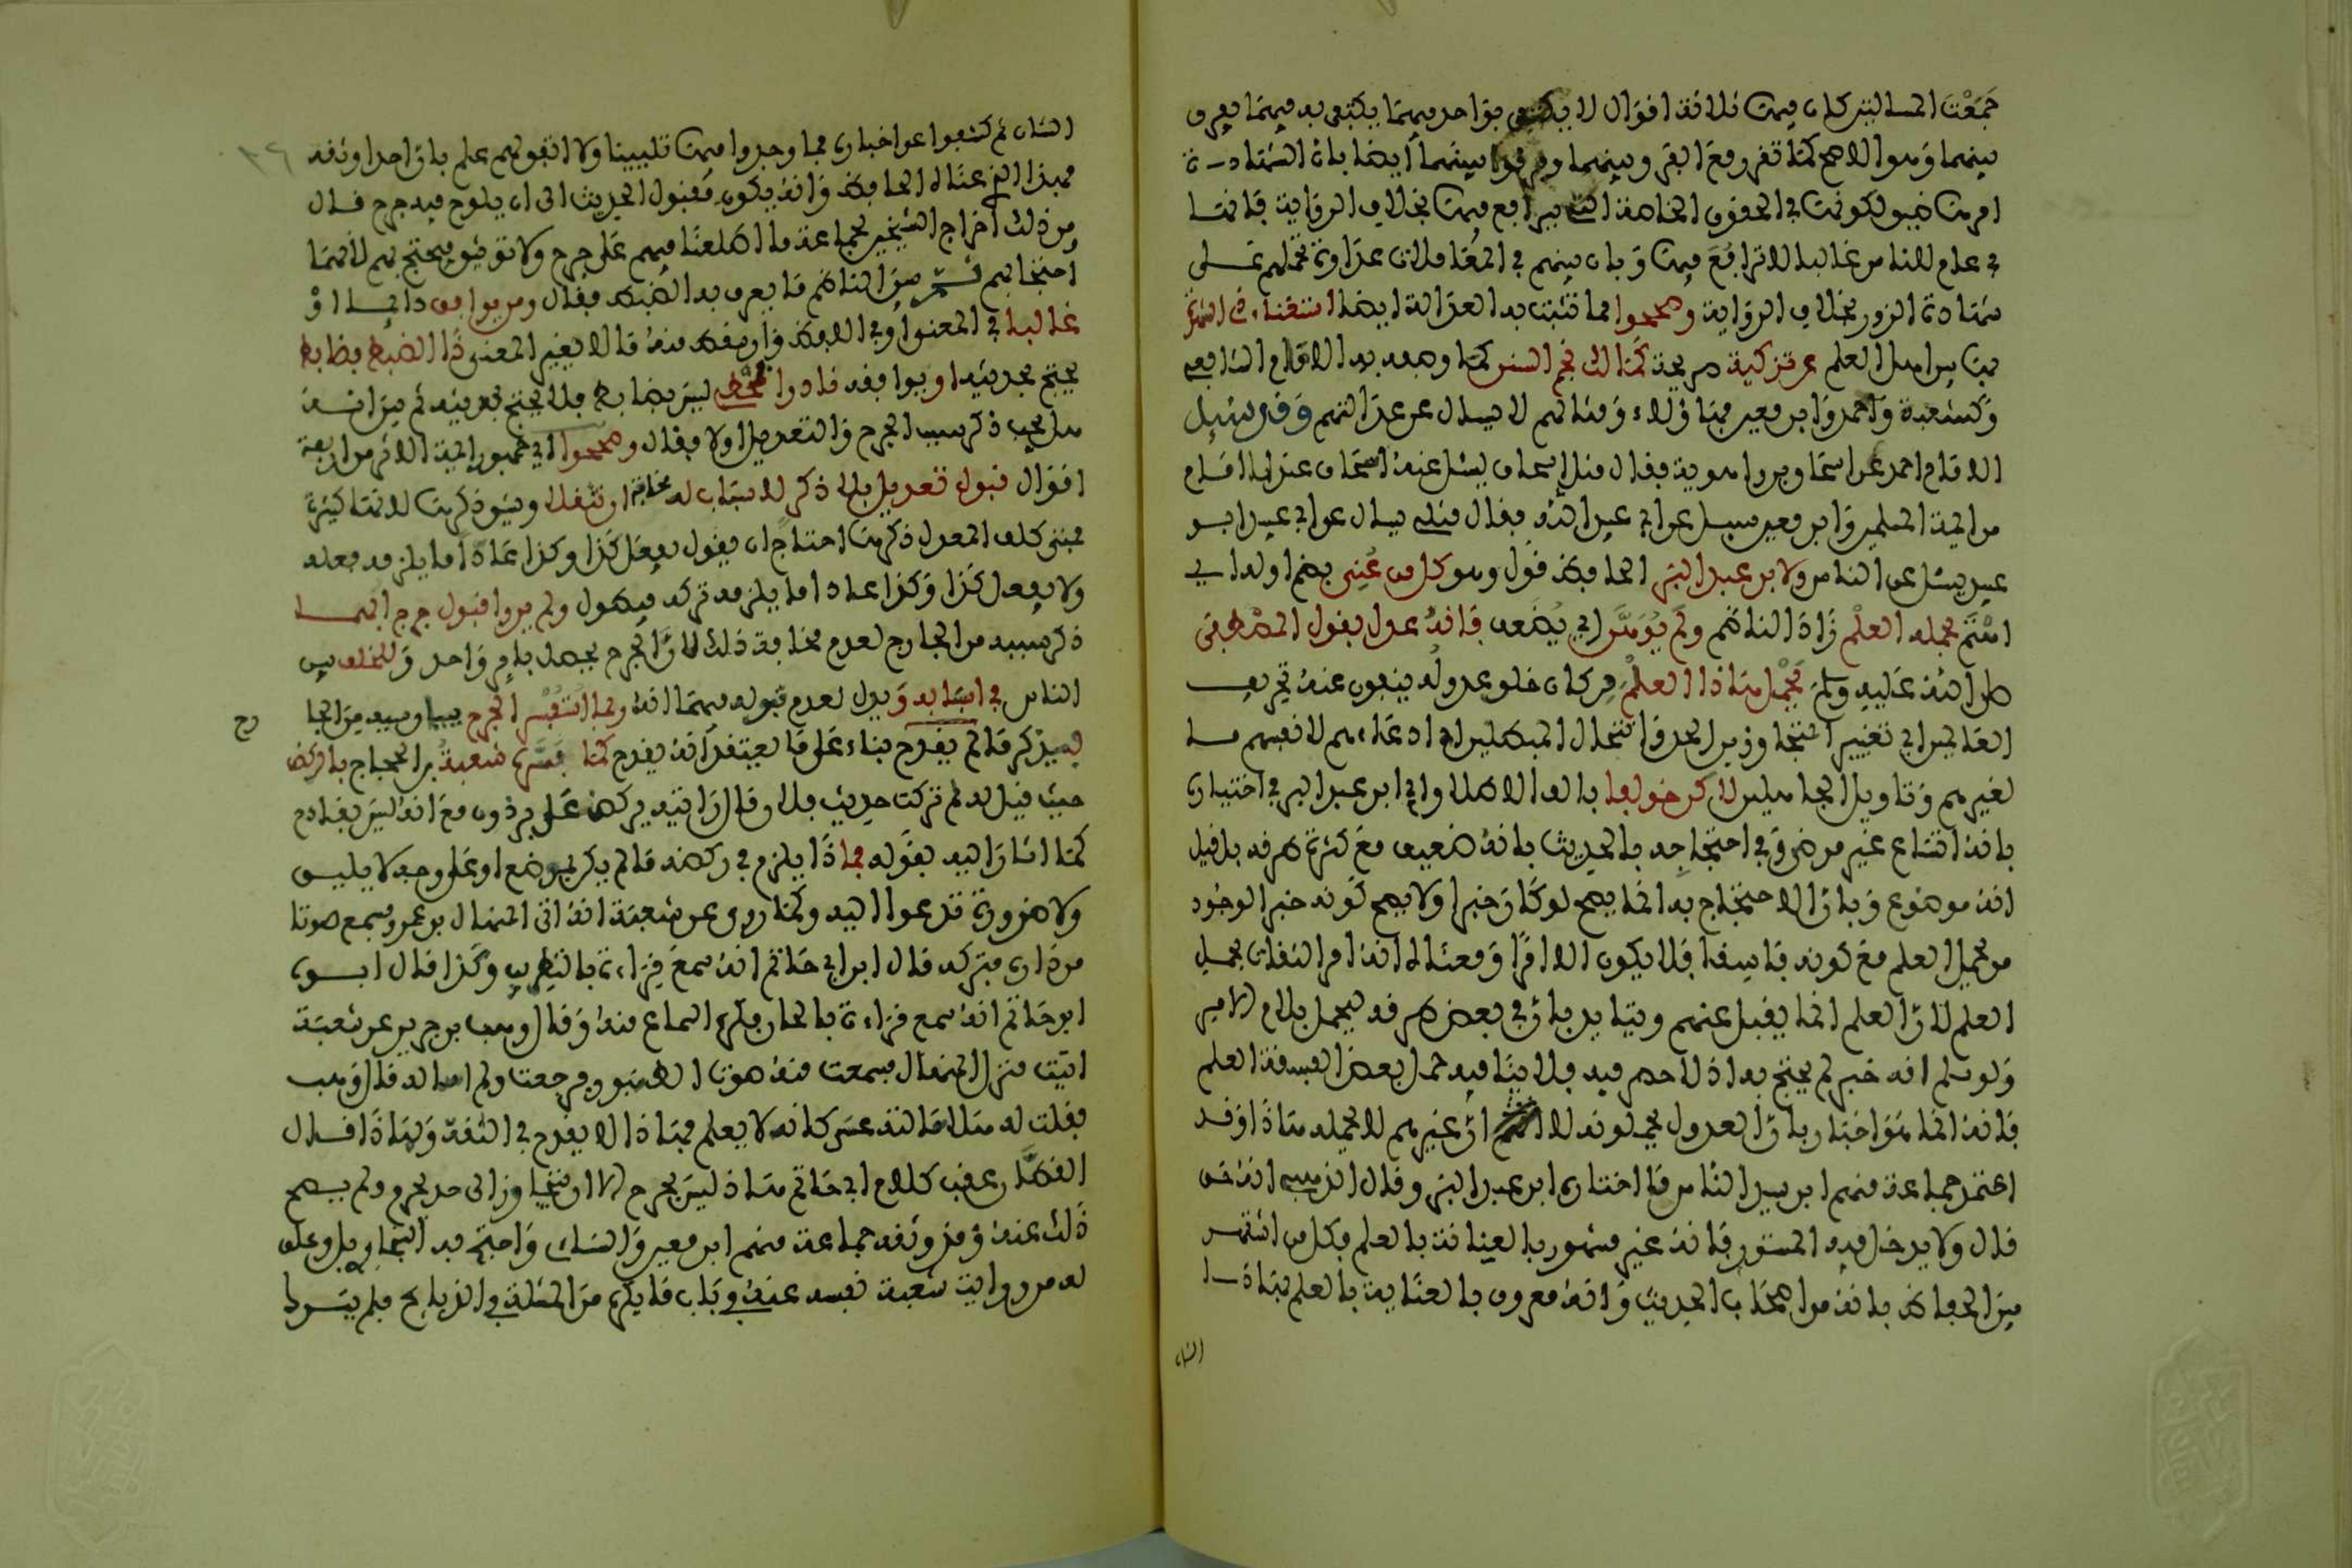 جمعت المسألتين كان فيهما ثلاثة أقوال لا يكتفى بواحد فيهما يكتفى به فيهما يفرق
بينهما وهو الاصح كما تقرر مع الفرق بينهما وفرقوا بينهما أيضا بان الشهادة
امرها ضيق لكونها في الحقوق الخاصة التي يترافع فيها بخلاف الرواية فانها
في عام للناس غالبا لا ترافع فيها وبان بينهم في المعاملات عداوة تحملهم على
شهادة الزور بخلاف الرواية وصححوا مما تثبت به العدالة ايضا استغناء ذي الشهرة
بها بين اهل العلم عن تزكية صريحة كمالك نجم السنن كما وصفه به الامام الشافعي
وكشعبة وأحمد وابن معين فهؤلاء وامثالهم لا يسأل عن عدالتهم وقد سئل
الامام احمد عن اسحاق بن راهويه فقال مثل اسحاق يسئل عنه اسحاق عندنا امام
من ائمة المسلمين وابن معين سئل عن ابي عبيد الله فقال مثلي يسأل عن ابي عبيد ابو
عبيد يسئل عن الناس ولابن عبد البر الحافظ قول وهو كل من عني بضم اوله اي
اهتم بحمله العلم زاد الناظم ولم يوهن اي يضعف فانه عدل بقول المصطفى
صلى الله عليه وسلم يحمل هذا العلم من كل خلف عدوله ينفون عنه تحريف
الغالين اي تغيير المتجاوزين الحد وانتحال المبطلين اي ادعاءهم لانفسهم ما
لغيرهم وتاويل الجاهلين لكن خولفا بالف الاطلاق اي ابن عبد البر في اختياره
بانه اتساع غير مرضي وفي احتجاجه بالحديث بانه ضعيف مع كثرة طرقه بل قيل
انه موضوع وبان الاحتجاج به انما يصح لو كان خبرا ولا يصح كونه خبرا لوجود
من يحمل العلم مع كونه فاسقا فلا يكون الا امرا ومعناه انه امر الثقات بحمل
العلم لان العلم انما يقبل عنهم ويتايد بان في بعض طرقه ليحمل بلام الامر
ولو سلم انه خبر لم يحتج به اذ لا حصر فيه فلا ينافيه حمل بعض الفسقة العلم
فانه انما هو اخبار بان العدول يحملونه لا ان غيرهم لا يحمله هذا وقد
اعتمد جماعة منهم ابن سيد الناس ما اختاره ابن عبد البر وقال الذهبي انه حق
قال ولا يدخل فيه المستور فانه غير مشهور بالعناية بالعلم فكل من اشتهر
بين الحفاظ بانه من اصحاب الحديث وانه معروف بالعناية بالعلم بهذا
الشان
الشان ثم كشفوا عن اخباره فما وجدوا فيها تليينا ولا اتفق لهم علم بان احدا وثقه
فهذا الذي عناه الحافظ وانه يكون مقبول الحديث الى ان يلوح فيه جرح قال
ومن ذلك اخراج الشيخين لجماعة ما اطلعنا فيهم على جرح ولا توثيق فيحتج بهم لانهما
احتجا بهم ثم بين الناظم ما يعرف به الضبط فقال ومن يوافق دائما او
غالبا في المعنى او في اللفظ ذا الضبط منه ما لا يغير المعنى ذا الضبط فضابط
يحتج بحديثه او يوافقه نادرا فمخطي ليس بضابط فلا يحتج بحديثه ثم بين انه
هل يجب ذكر سبب الجرح والتعديل او لا فقال وصححوا اي جمهور ائمة الاثر من اربعة
اقوال قبول تعديل بلا ذكر لاسباب له مخافة ان تثقلا ويشق ذكرها لانها كثيرة
فمتى كلف المعدل ذكرها احتاج ان يقول يفعل كذا وكذا عادا ما يلزمه فعله
ولا يفعل كذا وكذا عادا ما يلزمه تركه فيطول ولم يروا قبول جرح ابهما
ذكر سببه من الجارح لعدم مخافة ذلك لان الجرح يحصل بامر واحد وللخلف بين
الناس في اسبابه ويدل لعدم قبوله مبهما انه ربما استفسر الجرح ببيان سببه من الجارح
فيذكر ما لم يقدح بناء على ما يعتقد انه يقدح كما فسره شعبة بن الحجاج بالركض
حيث قيل له لم تركت حديث فلان قال رايته يركض على برذون مع انه ليس بقادح
كما اشار اليه بقوله فماذا يلزم في ركضه ما لم يكن بموضع او على وجه لا يليق
ولا ضرورة تدعو اليه وكما روي عن شعبة انه اتى المنهال بن عمرو فسمع صوتا
من داره فتركه قال ابن ابي حاتم انه سمع قراءة بالتطريب وكذا قال ابوه
ابو حاتم انه سمع قراءة بالحان فكره السماع منه وقال وهب بن جرير عن شعبة
اتيت منزل المنهال فسمعت منه صوت الطنبور فرجعت ولم اساله قال وهب
فقلت له هلا سالته عسى كان لا يعلم فهذا الا يقدح في الثقة ولهذا قال
القطان عقب كلام ابي حاتم هذا ليس بجرح الا ان يتجاوز الى حد يحرم ولم يصح
ذلك عنه وقد وثقه جماعة منهم ابن معين والنسائي واحتج به البخاري بل وعلق
له من رواية شعبة نفسه عنه في باب ما يكره من المثلة في الذبائح فلم يترك